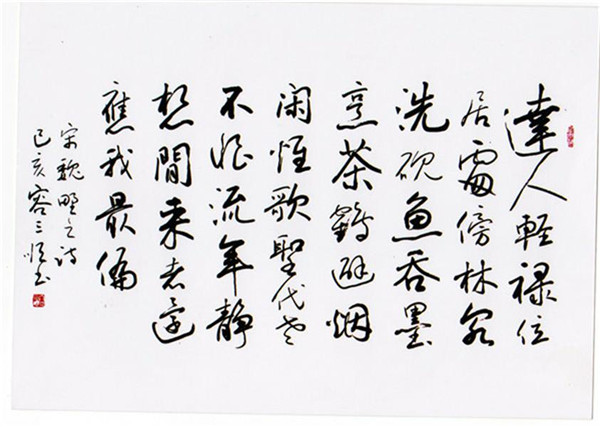 達人輕禄位
居處傍林泉
洗砚魚吞墨
烹茶鶴避烟
闲惟歌聖代老
不恨流年静
想間来者還
應我最偏
宋魏野之诗
己亥容三书